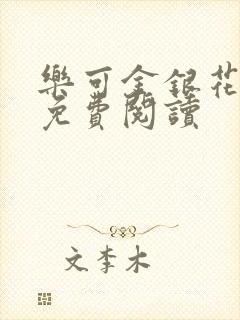 樂可金銀花
免費閱讀
文李木